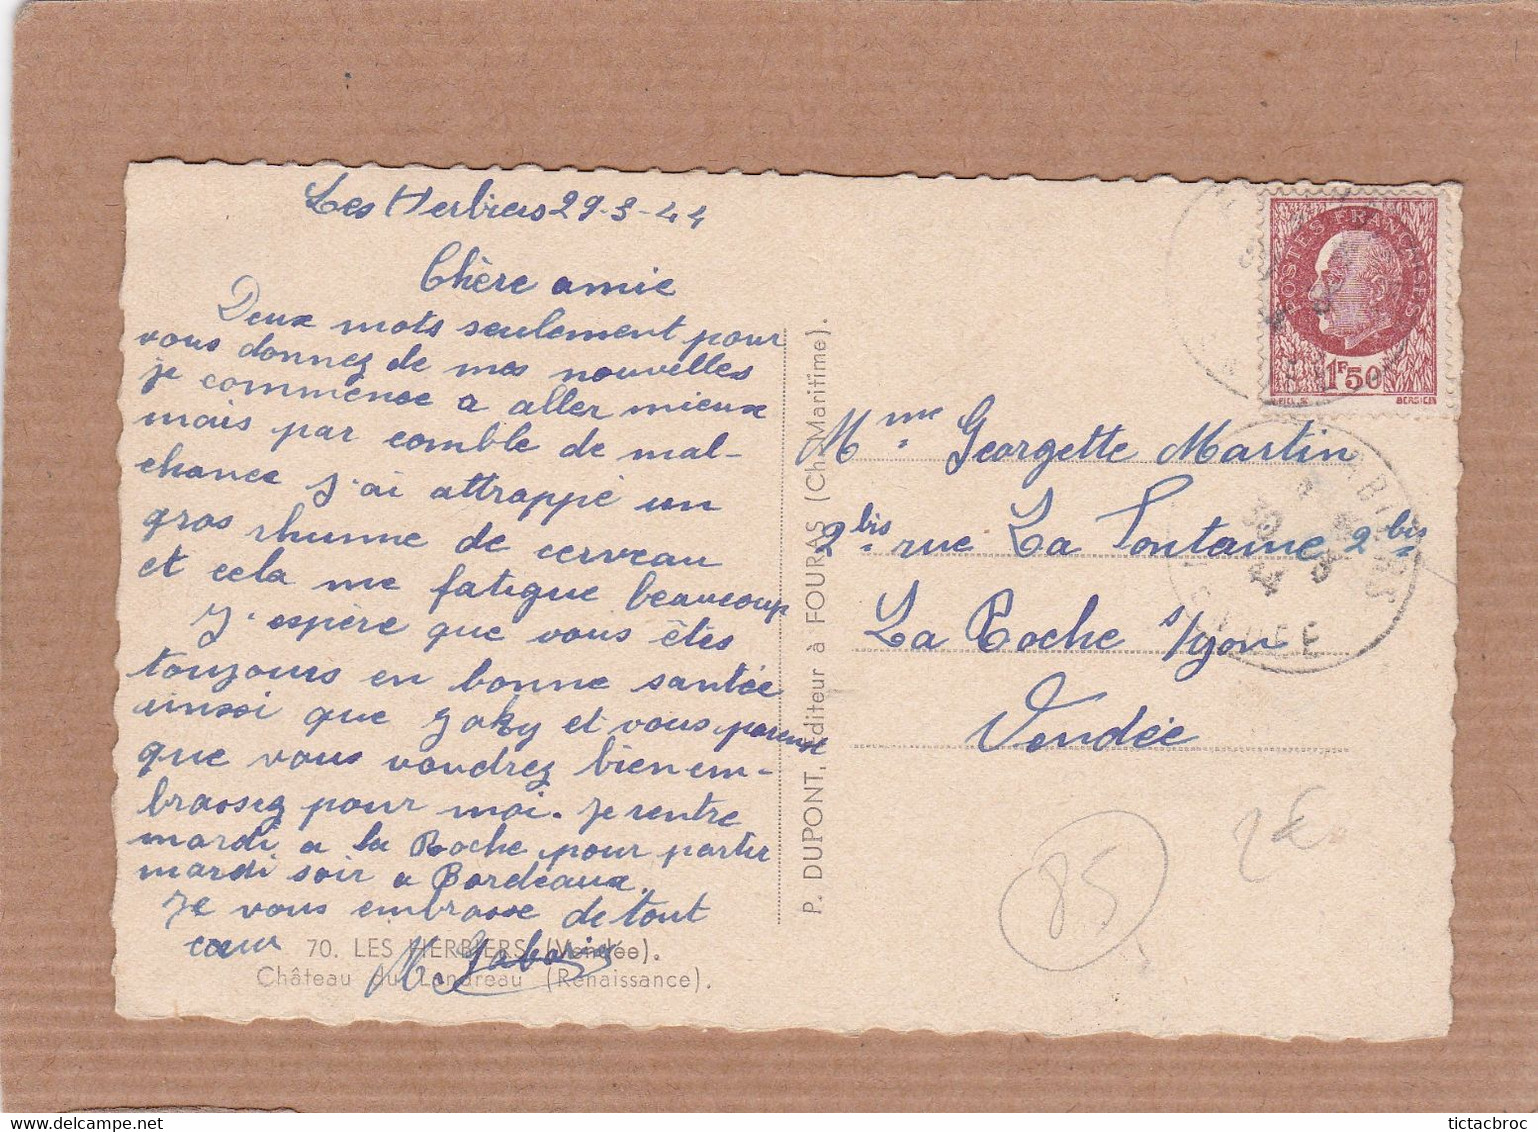 Les Herbiers 29-3-44
Chère amie
Deux mots seulement pour
vous donnez de mes nouvelles
je commence a aller mieux
mais par comble de mal-
chance j'ai attrappé un
gros rhunne de cerveau
et cela me fatigue beaucoup
J'espère que vous êtes
toujours en bonne santée
ainssi que Joky et vous pense
que vous voudrez bien em-
brassez pour moi. Je rentre
mardi a la Roche pour partir
mardi soir a Bordeaux.
Je vous embrasse de tout
cœur
70. LES HERBIERS (Vendée).
Château du Landreau (Renaissance).
P. DUPONT, Éditeur à FOURAS (Ch. Maritime).
POSTES FRANÇAISES
1F50
BERSIER
Mme Georgette Martin
2 bis rue La Fontaine 2 bis
La Roche s/yon
Vendée
85
2€
tictacbroc